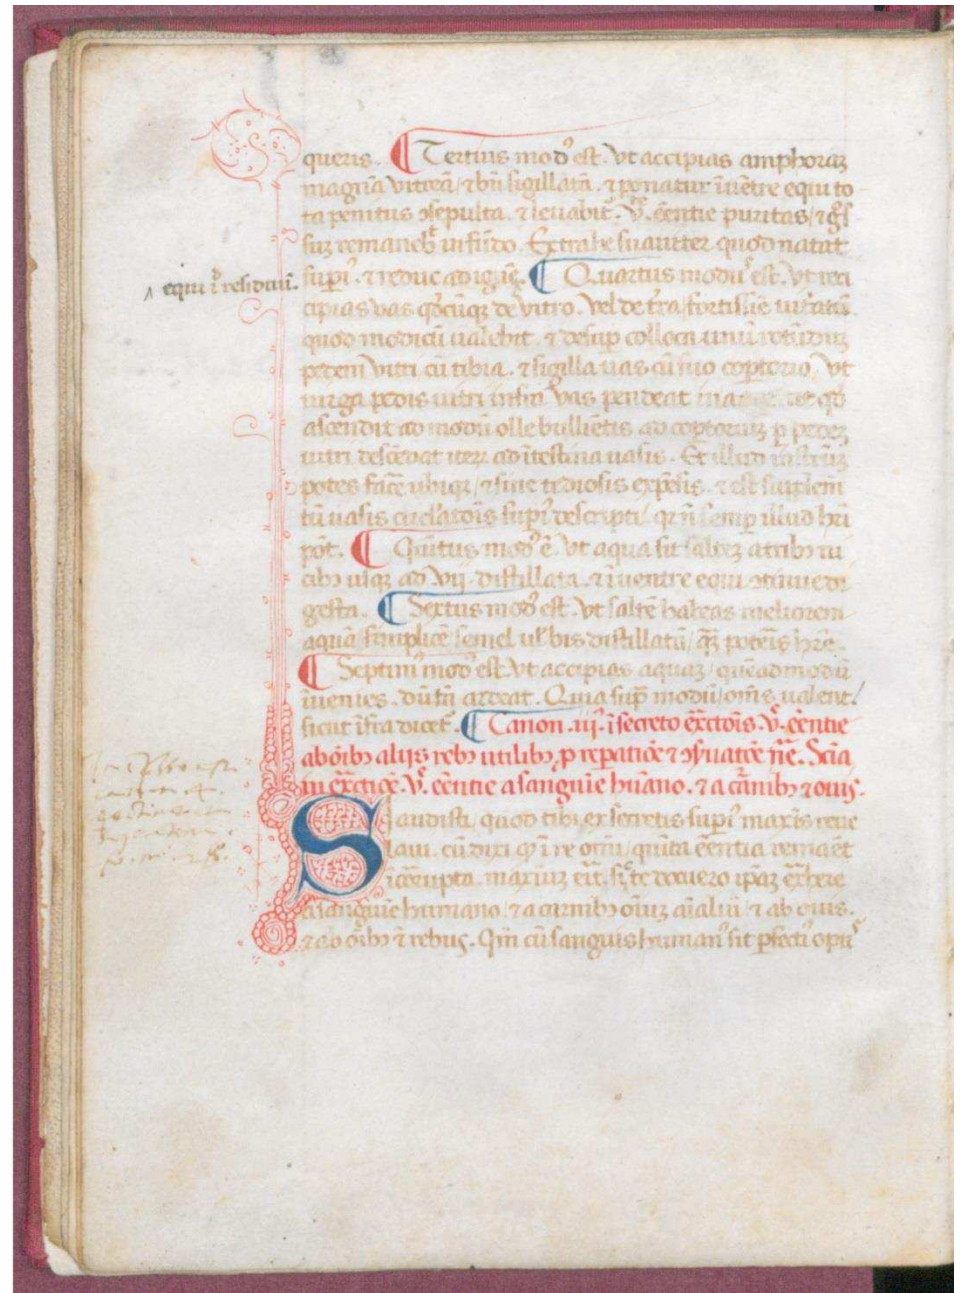 queris. Tertius modꝰ est. Vt accipias amphoraꝫ
magnā vitreā / ⁊ bn̄ sigillatā. ⁊ ponatur ī uētre equi to
ta penitus ↄsepulta. ⁊ leuabit᷑. vͤ. ēentie puritas /
remaneb᷑ in fūdo. Extrahe suauiter quod natat
supiꝰ. ⁊ reduc ad igнē. Quartus modꝰ est. Vt acci
equi ī residuū.
cipias vas de vitro. Vel de t̄ra / fortissīe
quod modicū ualebit. ⁊ desuꝑ colloca unū rotūduꝫ
pedem vitri cū tibia. ⁊ sigilla uas cū suo coꝑtorio. Vt
uirga pedis uitri infra vas pendeat
ascendit ad modū olle bullientis ad coꝑtoriuꝫ ꝑ pedeꝫ
uitri descēdat iteꝝ ad ītestina uasis. Et illud īstrūꝫ
potes facē ubiqꝫ / ⁊ sine tediosis expēsis. ⁊ est suplem̄
tū uasis circłatōis supiꝰ descripti. qꝛ n̄ semꝑ illud hr̄i
pōt. Quītus modꝰ ē. Vt aqua sit salteꝫ a tribꝫ ui
cibꝫ usqꝫ ad vij. distillata. ⁊ ī uentre equi ↄtinue di
gesta. Sextus modꝰ est. Vt saltē habeas meliorem
aquā simplicē semel uł bis distillatā / potēis hr̄e.
Septimꝰ modꝰ est. Vt accipias aquaꝫ / quēadmodū
īuenies. dū tn̄ ardeat. Quia suꝑ modū / om̄s ualent /
sicut īfra dicet᷑. Canon .iijꝰ. ī secreto ex̄ctōis. vͤ. ēentie
ab oībꝫ alijs rebꝫ utilibꝫ, ꝓ reꝑatiōe ⁊ ↄẜuatōe Scīa
in ex̄ctiōe. vͤ. ēentie a sanguīe hūano. ⁊ a cārnibꝫ ⁊ ouis.
Si audisti, quod tibi ex secretis supiꝰ maxīs reue
laui. cū dixi ꝙ ī re om̄i, quīta ēentia remaēt
īcorrupta. maxiuꝫ erit. si te docuero ip̄aꝫ ext̄here
a sanguīe humano / ⁊ a carnibꝫ oīuꝫ aīaliū / ⁊ ab ouis.
⁊ ab oībꝫ rebus. Qm̄ cū sanguis humanꝰ sit ꝑfectꝰ opꝰ